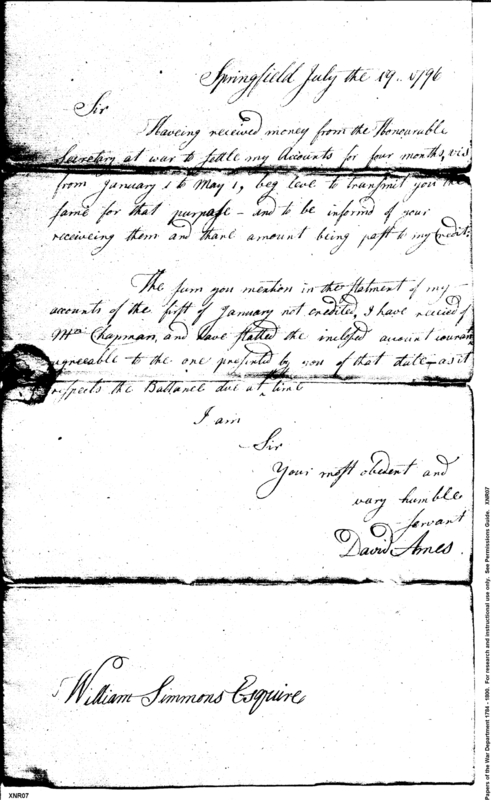 Springfield July the 19.. 1796
Sir
Haveing received money from the Honourable
Secretary at war to settle my Accounts for four months, viz
from January 1 to May 1, beg leve to transmit you the
same for that purpase - and to be informd of your
receiveing them and thare amount being past to my Credit.
The sum you mention in the statment of my
accounts of the first of January not credited, I have recieed of
Mr Chapman, and have statted the inclosed account
agreeable to the one presented by you of that date - as it
respects the Ballance due at time
I am
Sir
Your most obedent and
vary humble
servant
David Ames
William Simmons Esquire
XNR07
Papers of the War Department 1784 - 1800. For research and instructional use only. See Permissions Guide. XNR07